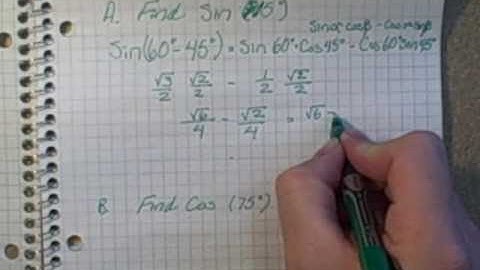 A. Find Sin (15°)
Sin α cos β - cos α sin β
Sin(60°- 45°) = Sin 60° · Cos 45° - Cos 60° Sin 45°
√3/2 √2/2 - 1/2 √2/2
√6/4 - √2/4 = √6 -
B. Find Cos (75°)